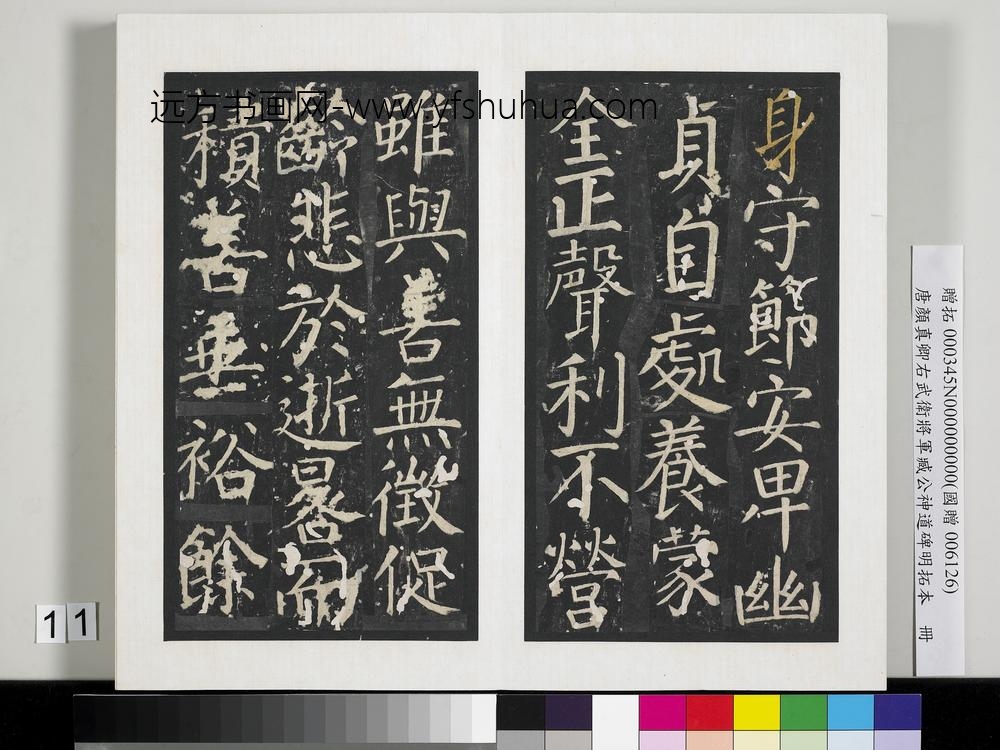 身守節安卑幽
貞自處養蒙
全正聲利不營
雖與善無徵促
齡悲於逝晷而
積善垂裕餘
远方书画网-www.yfshuhua.com
贈拓 000345N000000000(國贈 006126)
唐顏真卿右武衛將軍臧公神道碑明拓本 冊
1 1